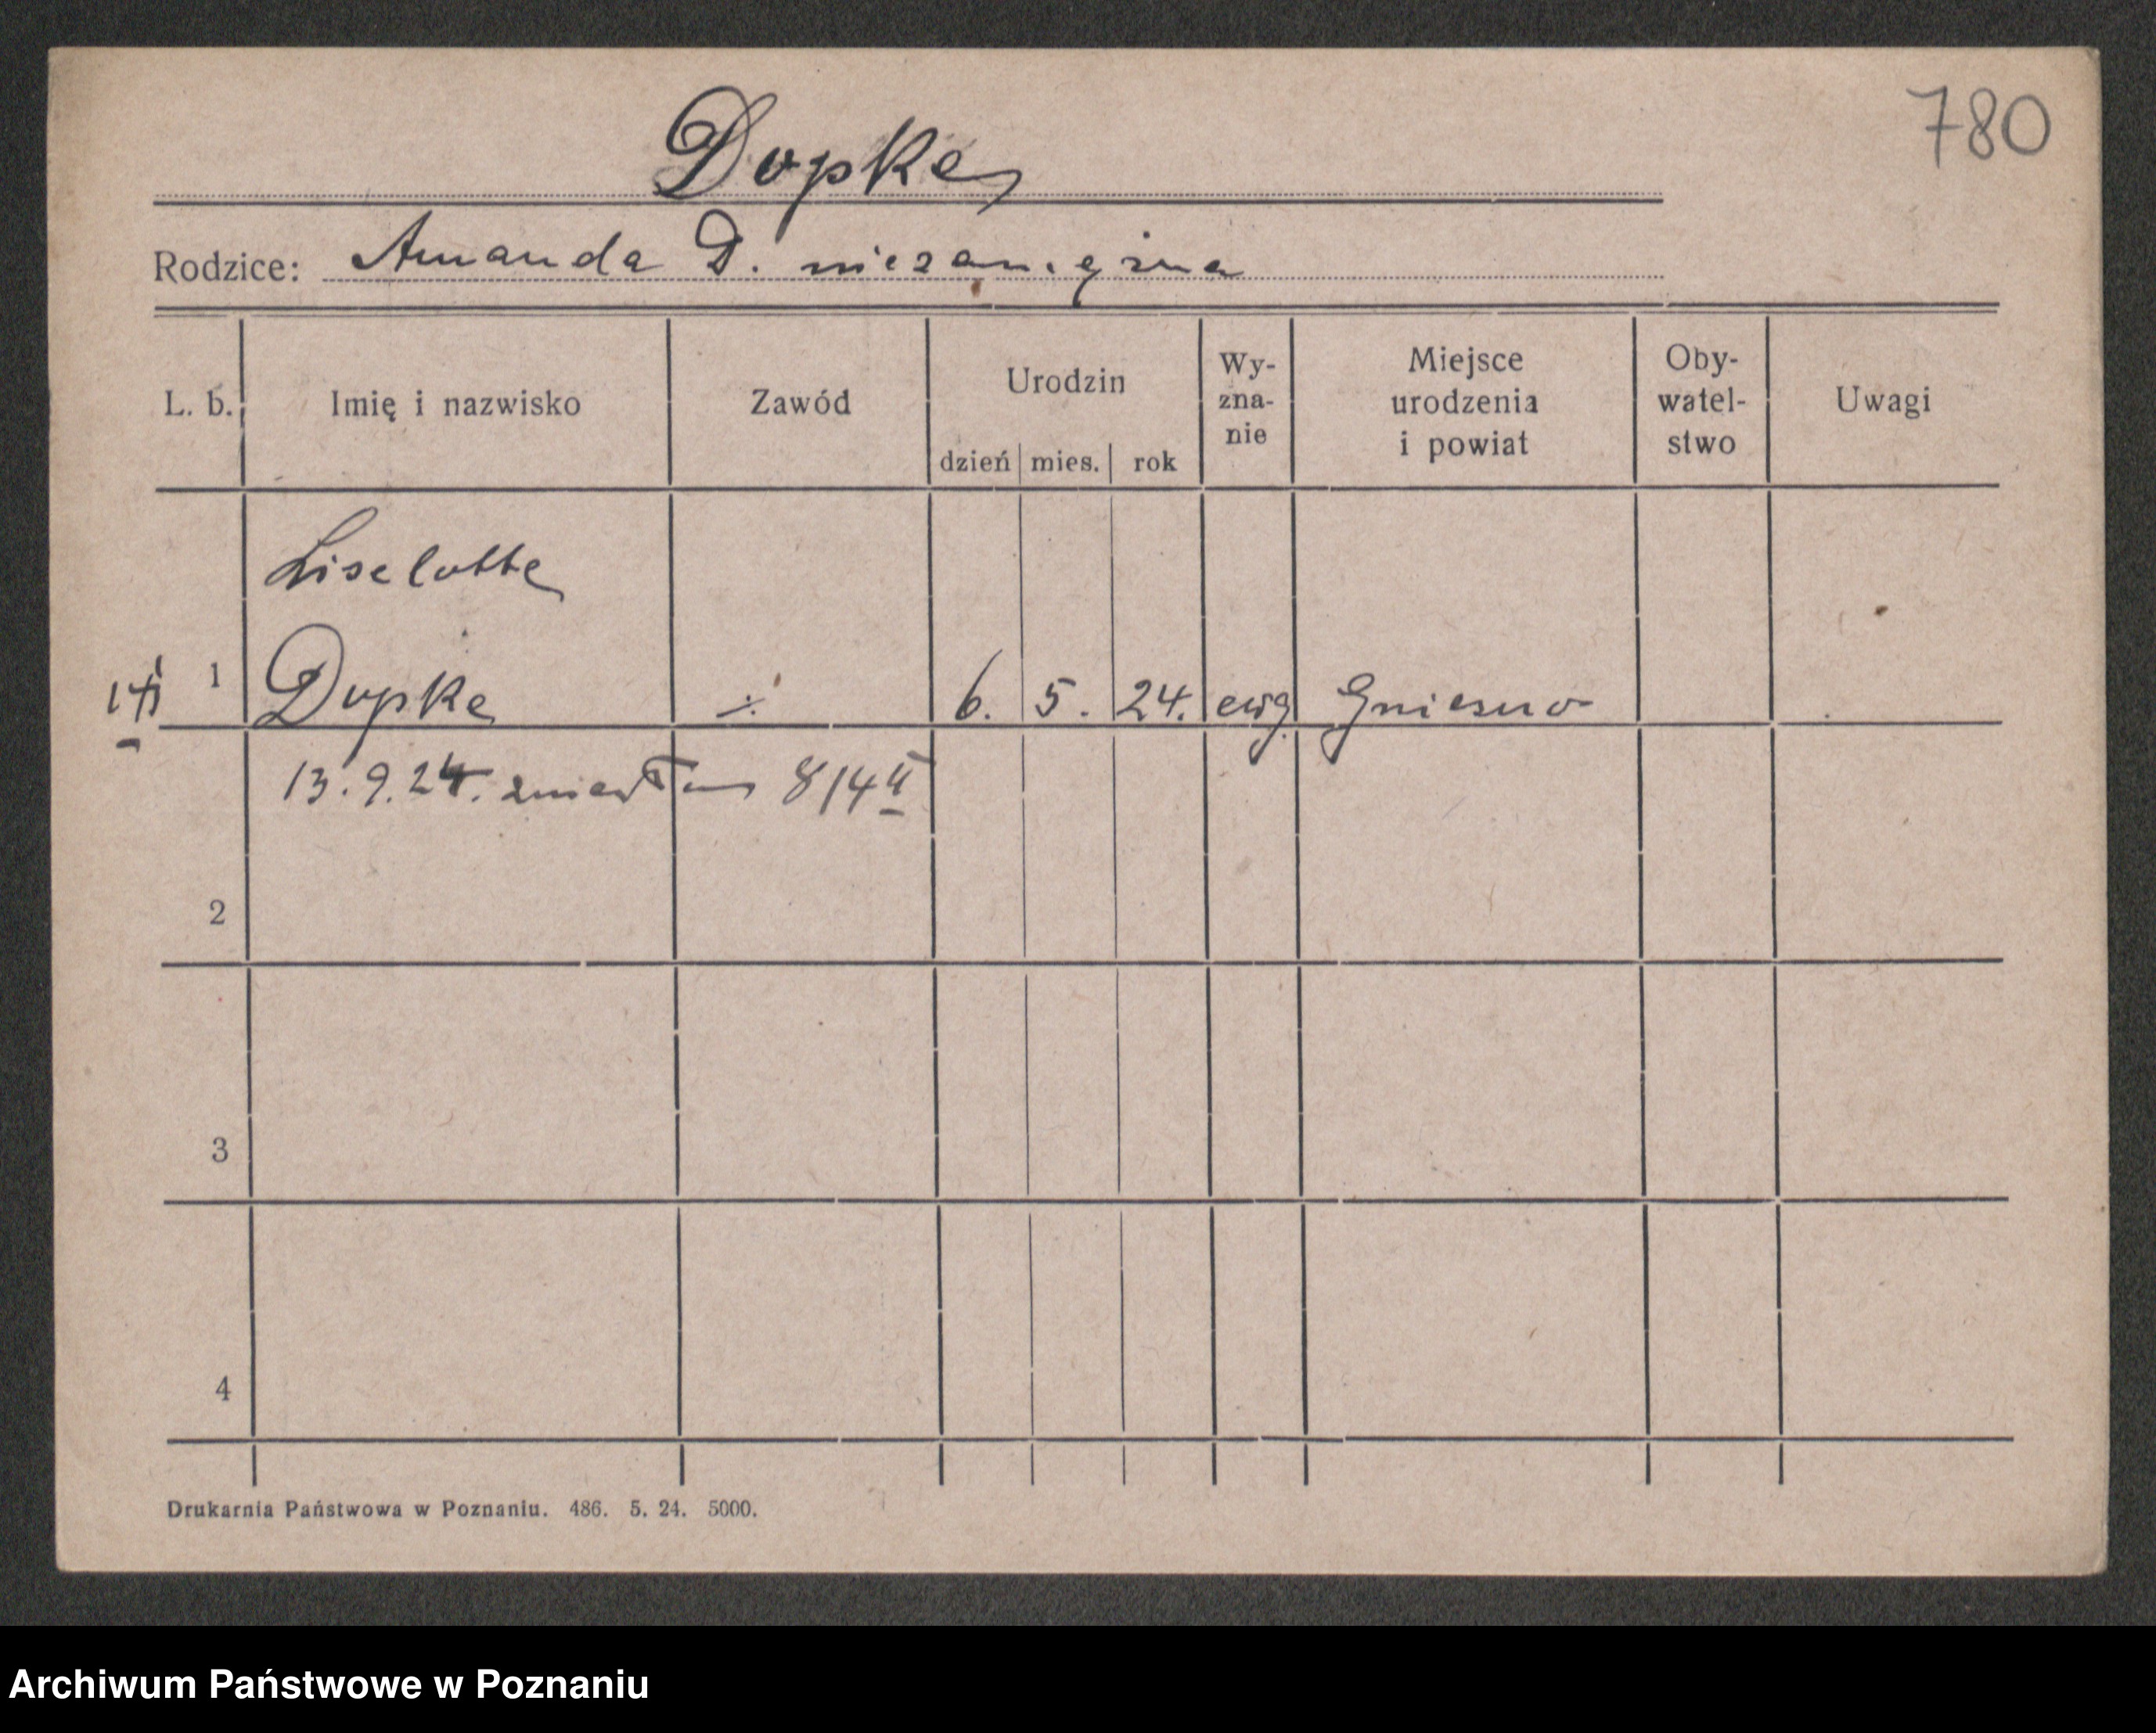 780
Dopke
Rodzice: Amanda D. niezamężna
L. b. Imię i nazwisko Zawód Urodzin dzień mies. rok Wy-zna-nie Miejsce urodzenia i powiat Oby-watel-stwo Uwagi
Liselotte
1 Dopke ÷ 6. 5. 24. ewg. Gniezno
13.9.24. 814
2
3
4
Drukarnia Państwowa w Poznaniu. 486. 5. 24. 5000.
Archiwum Państwowe w Poznaniu